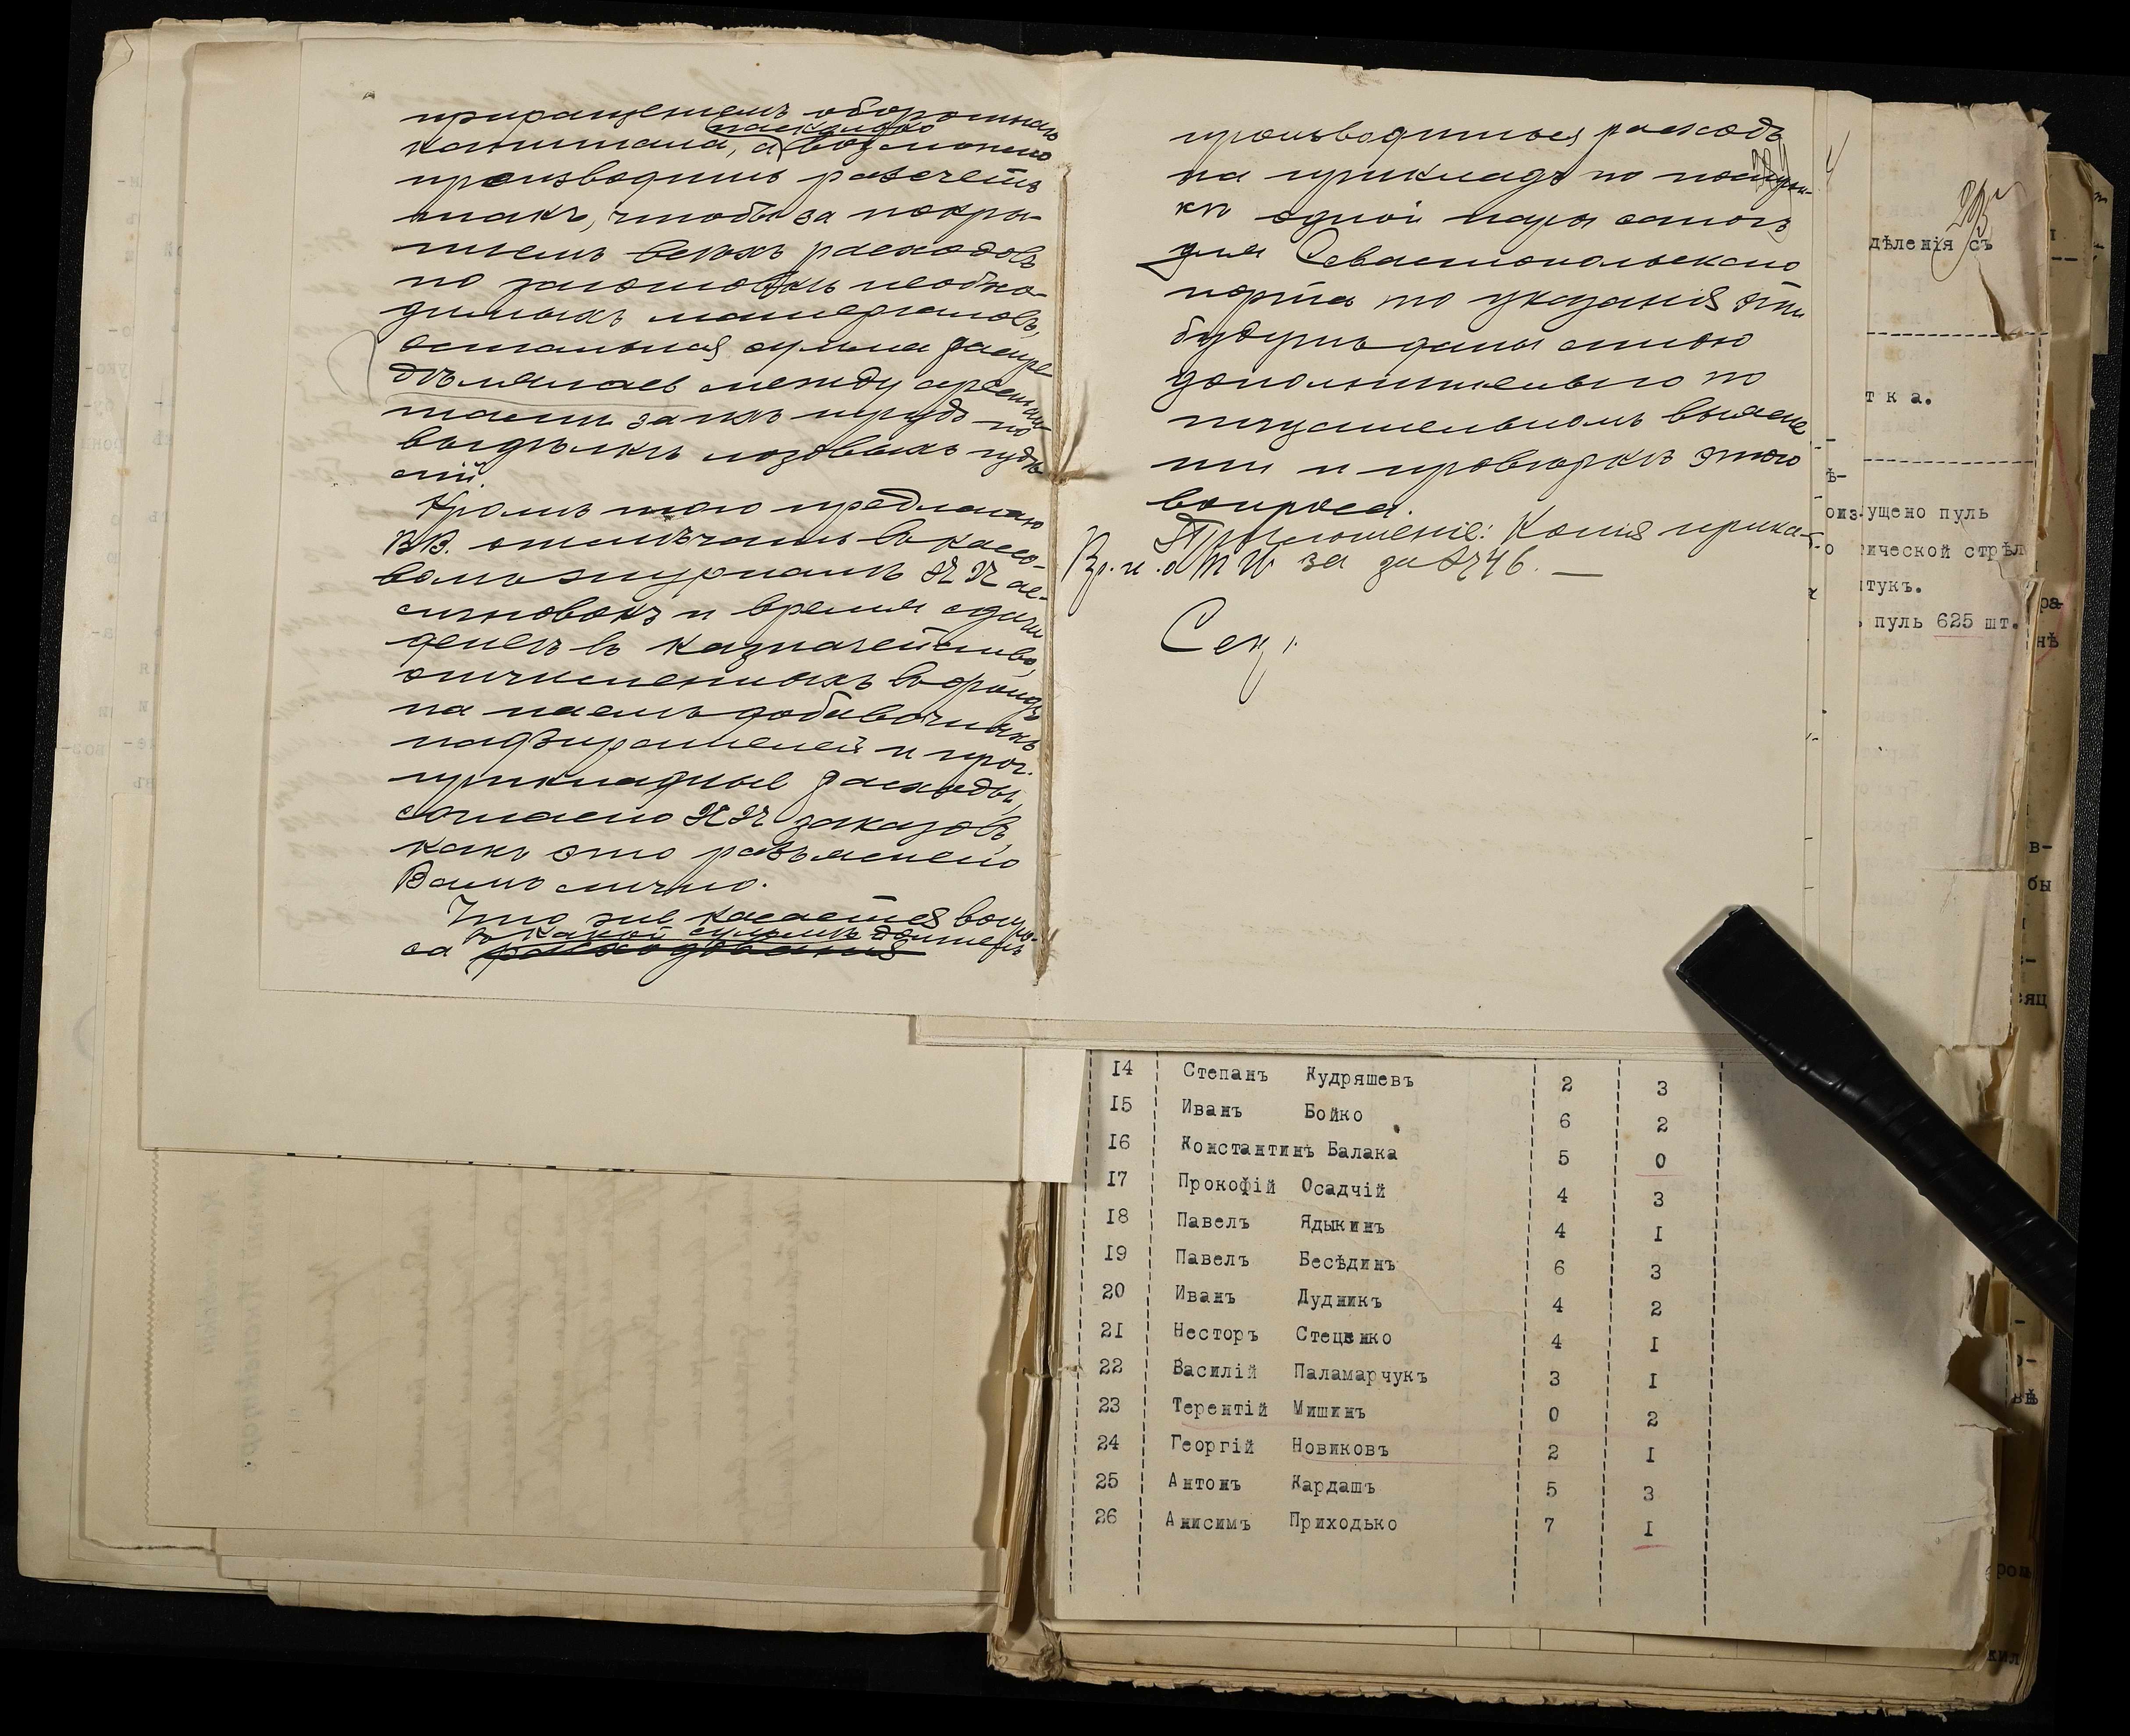 приращенiемъ оборотнаго
насколько
капитала, а возможно
производить разсчетъ
такъ, чтобы за покры-
тiемъ всѣхъ расходовъ
по заготовкѣ необхо-
димыхъ матерiаловъ,
остальная сумма распре
дѣлялась между арестан-
тами за ихъ трудъ по
выдѣлкѣ лозовыхъ издѣ
лiй.
Кромѣ того предлагаю
ВВ. отмѣчать въ кассо-
вомъ журналѣ №№ ас-
сигновокъ и время сдачи
денегъ въ казначейство,
отчисленныхъ въ фондъ
на наемъ добавочныхъ
надзирателей и проч.
прикладные расходы,
согласно №№ заказовъ,
какъ это разъяснено
Вамъ лично.
Что же касается вопро-
въ какой суммѣ долженъ
са расходованiя
производиться расходъ
на прикладъ по почин-
кѣ одной пары сапогъ
для Севастопольскаго
порта то указанiя эти
будутъ даны мною
дополнительно по
тщательномъ выясне
нiи и провѣркѣ этого
вопроса.
Приложенiе: Копiя прика-
за за № 46. —
Вр. и. о
Сек.
дѣленiя съ
т к а.
ущено пуль
ической стрѣл
тукъ.
пуль 625 шт.
14 Степанъ Кудряшевъ 2 3
15 Иванъ Бойко 6 2
16 Константинъ Балака 5 0
17 Прокофiй Осадчiй 4 3
18 Павелъ Ядыкинъ 4 1
19 Павелъ Бесѣдинъ 6 3
20 Иванъ Дудникъ 4 2
21 Несторъ Стеценко 4 1
22 Василiй Паламарчукъ 3 1
23 Терентiй Мишинъ 0 2
24 Георгiй Новиковъ 2 1
25 Антонъ Кардашъ 5 3
26 Анисимъ Приходько 7 1